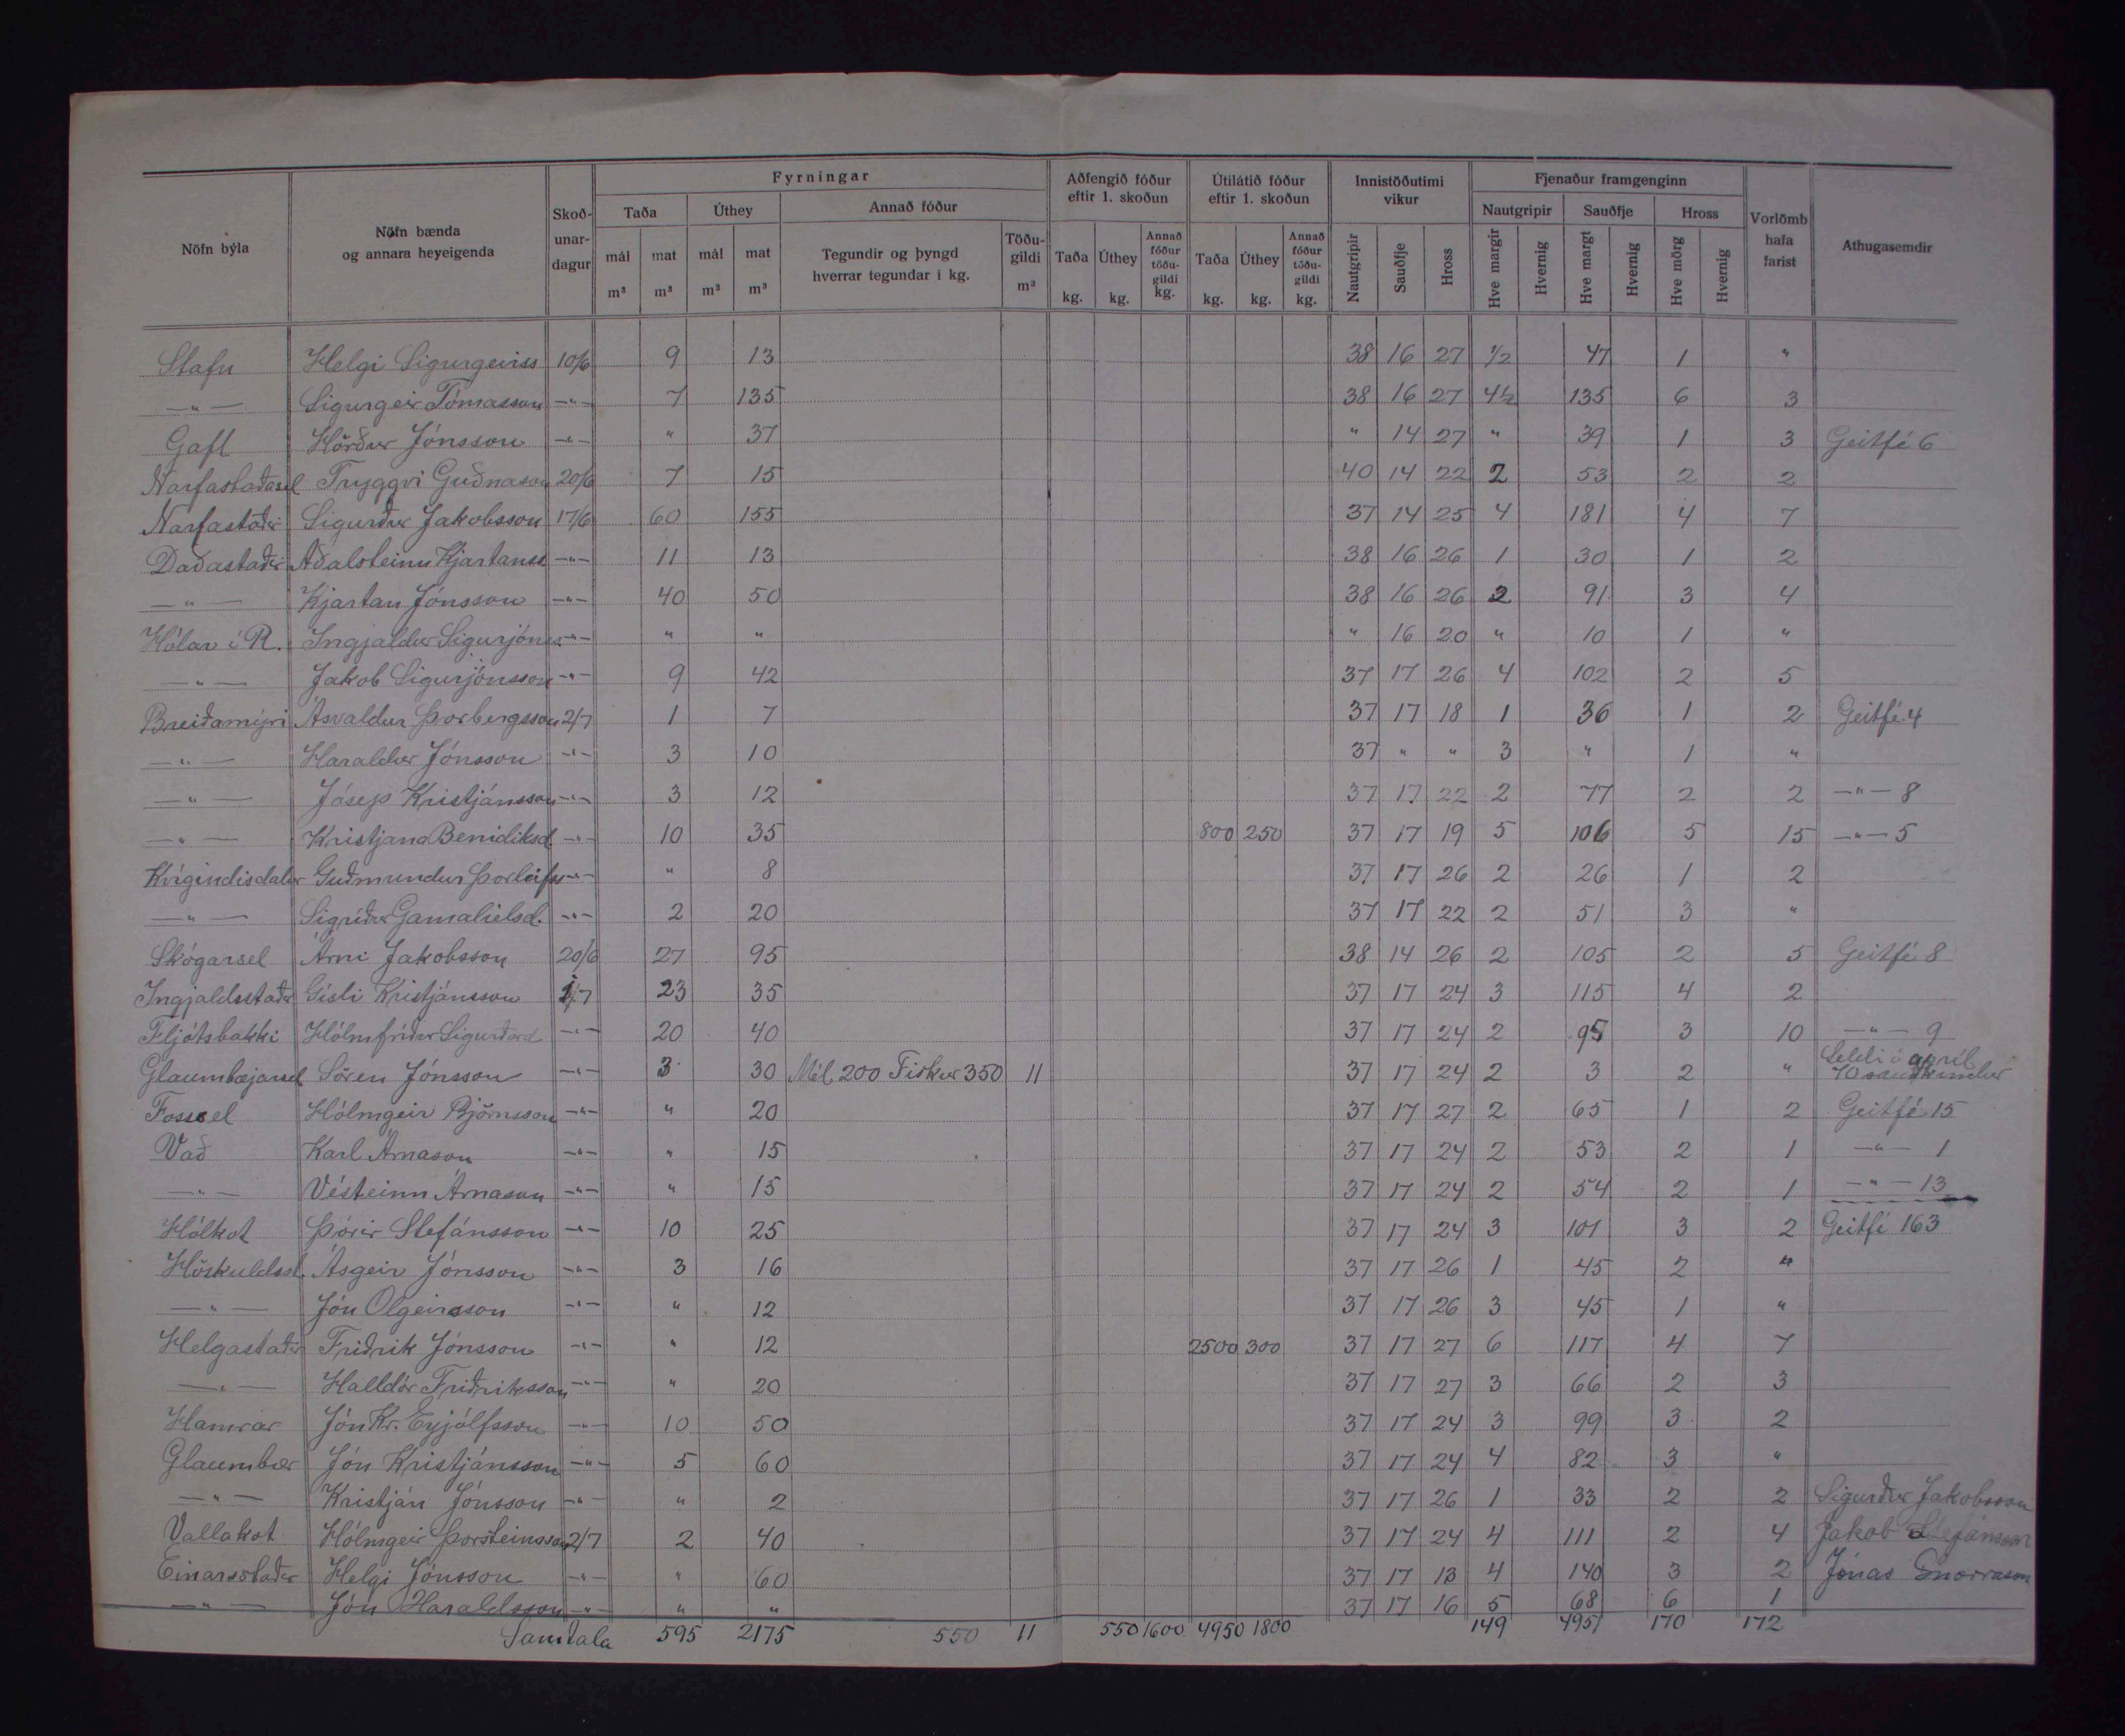 Fyrningar
Aðfengið fóður eftir 1. skoðun
Útilátið fóður eftir 1. skoðun
Innistöðutimi vikur
Fjenaður framgenginn
Nöfn býla
Nöfn bænda og annara heyeigenda
Skoð-unar-dagur
Taða
Úthey
Annað fóður
Nautgripir
Sauðfje
Hross
Vorlömb hafa farist
Athugasemdir
mál m³ mat m³ mál m³ mat m³
Tegundir og þyngd hverrar tegundar í kg.
Töðu-gildi m³
Taða kg. Úthey kg. Annað fóður töðu-gildi kg.
Taða kg. Úthey kg. Annað fóður töðu-gildi kg.
Nautgripir Sauðfje Hross
Hve margir Hvernig Hve margt Hvernig Hve mörg Hvernig
Stafn Helgi Sigurgeirss 10/6 9 13 38 16 27 1/2 47 1 "
—"— Sigurgeir Tómasson —"— 7 135 38 16 27 4½ 135 6 3
Gafl Hörður Jónsson —"— " 37 " 14 27 " 39 1 3 Geitfé 6
Narfastaðasel Tryggvi Guðnason 20/6 7 15 40 14 22 2 53 2 2
Narfastaðir Sigurður Jakobsson 17/6 60 155 37 14 25 4 181 4 7
Daðastaðir Aðalsteinn Kjartanss —"— 11 13 38 16 26 1 30 1 2
—"— Kjartan Jónsson —"— 40 50 38 16 26 2 91 3 4
Hólar í R. Ingjaldur Sigurjónss —"— " " " 16 20 " 10 1 "
—"— Jakob Sigurjónsson —"— 9 42 37 17 26 4 102 2 5
Breiðamýri Ásvaldur Þorbergsson 2/7 1 7 37 17 18 1 36 1 2 Geitfé 4
—"— Haraldur Jónsson —"— 3 10 37 " " 3 " 1 "
—"— Jósep Kristjánsson —"— 3 12 37 17 22 2 77 2 2 —"— 8
—"— Kristjana Benidiksd. —"— 10 35 800 250 37 17 19 5 106 5 15 —"— 5
Kvígindisdalur Guðmundur Þorleifss —"— " 8 37 17 26 2 26 1 2
—"— Sigríður Gamalielsd. —"— 2 20 37 17 22 2 51 3 "
Skógarsel Árni Jakobsson 20/6 27 95 38 14 26 2 105 2 5 Geitfé 8
Ingjaldsstaðir Gísli Kristjánsson 1/7 23 35 37 17 24 3 115 4 2
Fljótsbakki Hólmfríður Sigurðard —"— 20 40 37 17 24 2 95 3 10 —"— 9
Glaumbæjarsel Sören Jónsson —"— 3 30 Mél 200 Fiskur 350 11 37 17 24 2 3 2 " Seldi í apríl 70 sauðkindur
Fossel Hólmgeir Björnsson —"— " 20 37 17 27 2 65 1 2 Geitfé 15
Vað Karl Árnason —"— " 15 37 17 24 2 53 2 1 —"— 1
—"— Vésteinn Árnason —"— " 15 37 17 24 2 54 2 1 —"— 13
Hólkot Þórir Stefánsson —"— 10 25 37 17 24 3 101 3 2 Geitfé 163
Höskuldsst. Ásgeir Jónsson —"— 3 16 37 17 26 1 45 2 "
—"— Jón Olgeirsson —"— " 12 37 17 26 3 45 1 "
Helgastaðir Friðrik Jónsson —"— " 12 2500 300 37 17 27 6 117 4 7
—"— Halldór Friðriksson —"— " 20 37 17 27 3 66 2 3
Hamrar Jón Kr. Eyjólfsson —"— 10 50 37 17 24 3 99 3 2
Glaumbær Jón Kristjánsson —"— 5 60 37 17 24 4 82 3 "
—"— Kristján Jónsson —"— " 2 37 17 26 1 33 2 2 Sigurður Jakobsson
Vallakot Hólmgeir Þorsteinsson 2/7 2 40 37 17 24 4 111 2 4 Jakob Stefánsson
Einarsstaðir Helgi Jónsson —"— " 60 37 17 13 4 140 3 2 Jónas Snorrason
—"— Jón Haraldsson —"— " " 37 17 16 5 68 6 1
Samtala 595 2175 550 11 550 1600 4950 1800 149 4951 170 172